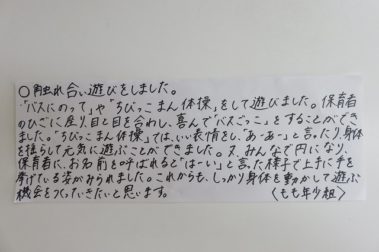 〇触れ合い遊びをしました。
「バスにのって」や「ちびっこまん体操」をして遊びました。保育者
のひざに座り、目と目を合わし、喜んで「バスごっこ」をすることができ
ました。「ちびっこまん体操」では、いい表情をし、「あーあー」と言ったり、身体
を揺らして元気に遊ぶことができました。又、みんなで円になり、
保育者に、お名前を呼ばれると「はーい」と言った様子で上手に手を
挙げている姿がみられました。これからも、しっかり身体を動かして遊ぶ
機会をつくっていきたいと思います。 〈もも年少組〉